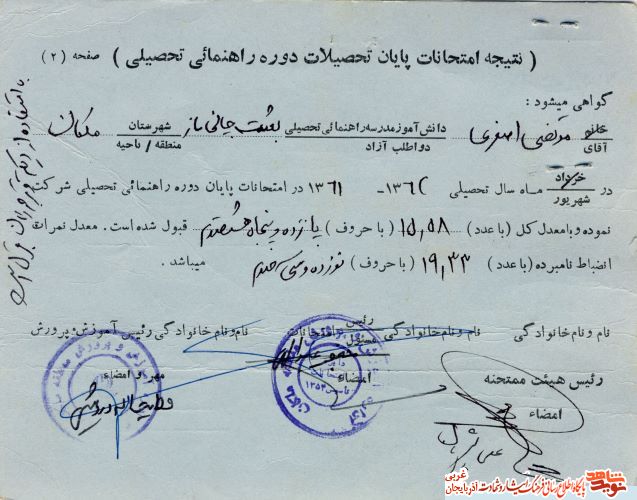 ( نتیجه امتحانات پایان تحصیلات دوره راهنمائی تحصیلی ) صفحه ( ۲ )
گواهی میشود :
خانم
آقای مرتضی اصغری دانش آموز مدرسه راهنمائی تحصیلی بعثت چالی ناز شهرستان ملکان
داوطلب آزاد منطقه / ناحیه
در خرداد ماه سال تحصیلی ۱۳۶۲ - ۱۳۶۱ در امتحانات پایان دوره راهنمائی تحصیلی شرکت
شهریور
نموده و با معدل کل ( با عدد ) ۱۵,۵۸ ( با حروف ) پانزده و پنجاه هشت صدم قبول شده است . معدل نمرات
انضباط نامبرده ( با عدد ) ۱۹,۳۳ ( با حروف ) نوزده و سی سه صدم میباشد .
نام و نام خانوادگی نام و نام خانوادگی رئیس امتحانات نام و نام خانوادگی رئیس آموزش و پرورش
مسئول
رئیس هیئت ممتحنه امضاء مهر و امضاء
امضاء
تاسیس ۱۳۵۴
نوید شاهد
پایگاه اطلاع رسانی فرهنگ ایثار و شهادت آذربایجان غربی